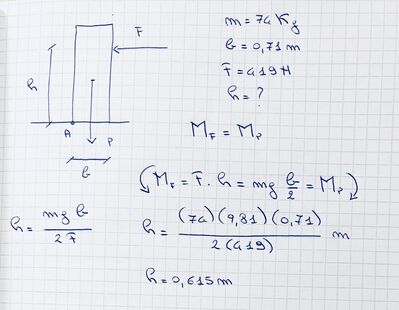 m = 74 Kg
b = 0,71 m
F = 419 N
h = ?
F
h
A
P
b
M_F = M_P
M_F = F · h = mg b/2 = M_P
h = mgb / 2F
h = (74)(9,81)(0,71) / 2(419) m
h = 0,615 m